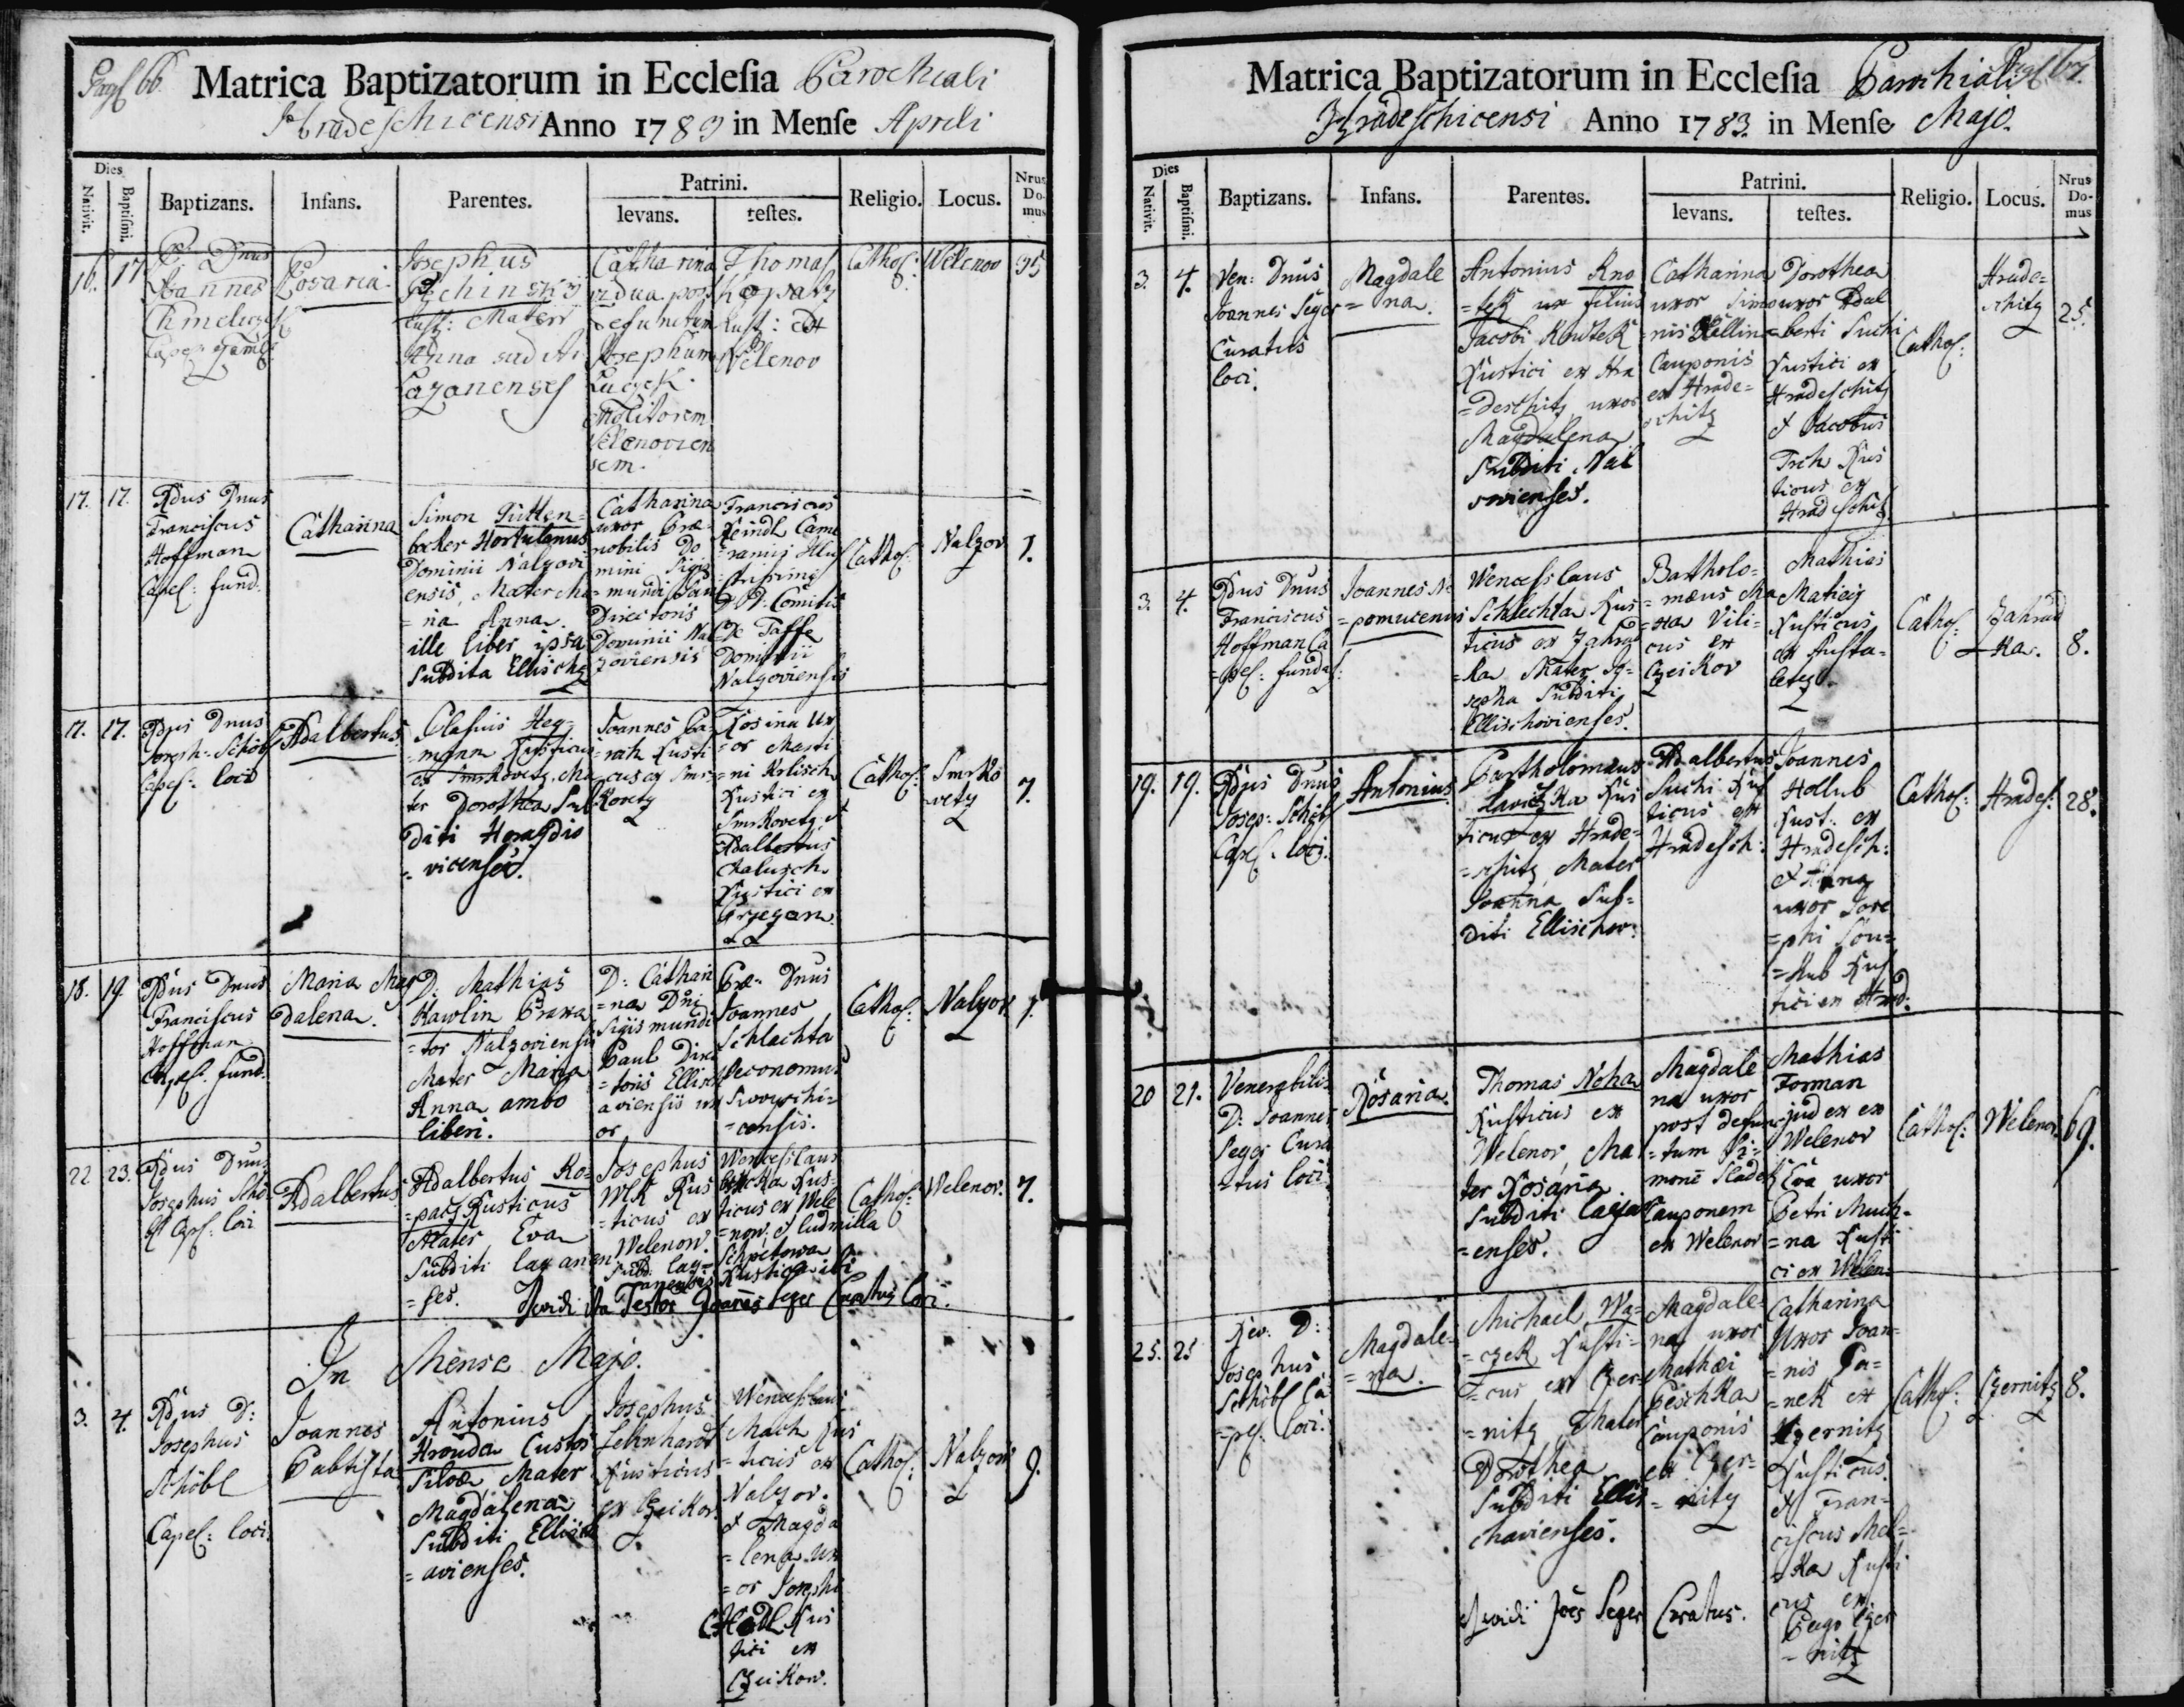 Pag: 66. Matrica Baptizatorum in Ecclesia Parochiali
Hradeschicensi Anno 1783 in Mense Aprili
Dies
Nativit.
Baptismi.
Baptizans.
Infans.
Parentes.
Patrini.
levans.
testes.
Religio.
Locus.
Nrus Do-mus
16.
17
P: Dnus
Joannes
Chmeliczek
Rosaria.
Josephus
Rust: Mater
Anna subditi
Lazanenses
Catharina
vidua post
defunctum
Josephum
Luczek
Molitorem
Velenovien
sem.
Thomas
Kopatz
Rust: ex
Velenov
Cathol:
Welenov
35
17.
17.
Rdus Dnus
Franciscus
Hoffman
Capel: fund.
Catharina
Simon Tutten=
bocher Hortulanus
Dominii Nalzovi
ensis, Mater An=
=na Anna.
ille liber ipsa
Subdita Ellische
Catharina
uxor Præ=
nobilis Do
mini Sigis
=mundi Paul
Directoris
Dominii Nal
zoviensis
Franciscus
Reindl Came
=rarius Illus
=trissimi
D. D: Comitis
De Taffe
Dominii
Nalzoviensis
Cathol:
Nalzov
1.
17.
17.
Rdus Dnus
Joseph: Schöbl
Capel: loci
Adalbertus.
Blasius Heg=
=mann Rusticus
ex Smrkovetz, Ma
ter Dorothea Sub
diti Horazdio
=vicenses.
Joannes Ba=
=rah Rusti
=cus ex Smr=
kovetz
Rosina Ux
=or Marti
=ni Krlisch
Rustici ex
Smrkovetz, et
Adalbertus
Chalusch
Rustici ex
Brzezan
Cathol:
Smrko
=vetz
7.
18.
19.
Rdus Dnus
Franciscus
Hoffman
Capel: fund.
Maria Mag
dalena.
D: Mathias
Kawlin Braxa
=tor Nalzoviensis
Mater Maria
Anna ambo
liberi.
D: Cathari
=na Dni
Sigismundi
Paul Direc
=toris Ellisch
aviensis ux
or
Præ: Dnus
Joannes
Schlachta
Oeconomus
=censis.
Cathol:
Nalzov.
1.
22
23.
Rdus Dnus
Josephus Schö
bl Capel: loci
Adalbertus
Adalbertus Ko=
=patz Rusticus
Mater Eva
Subditi lazanen
=ses.
Josephus
Wlk Rus
=ticus ex
Welenow.
Subd: laz=
anensis
Wenceslaus
Rus=
ticus ex Wele
=now, et Ludmilla
Rustica ibi
Cathol:
Welenov.
7.
Ita Testor Joannes Seger Curatus loci.
In Mense Majo.
3.
4.
Rdus D:
Josephus
Schöbl
Capel: loci.
Joannes
Babtista
Antonius
Hrouda Custos
Silvæ, Mater
Magdalena
Subditi Ellisch
=avienses.
Josephus
Lehnhardt
Rusticus
ex Czeikov.
Wenceslaus
Mach Rus
=ticus ex
Nalzov.
et Magda
=lena Ux
=or Josephi
Hodl Rus
tici ex
Czeikow.
Cathol:
Nalzov
9.
Matrica Baptizatorum in Ecclesia Parochiali Pag: 67.
Hradeschicensi Anno 1783. in Mense Majo.
Dies
Nativit.
Baptismi.
Baptizans.
Infans.
Parentes.
Patrini.
levans.
testes.
Religio.
Locus.
Nrus Do-mus
3.
4.
Ven: Dnus
Joannes Seger
Curatus
loci.
Magdale
=na.
Antonius Kno
=tek ux filius
Jacobi Knotek
Rustici ex Hra
=deschitz, uxor
Magdalena
Subditi Nal
zovienses.
Catharina
uxor Simo
nis Hallin
Cauponis
ex Hrade=
schitz
Dorothea
uxor Adal
=berti Suchi
Rustici ex
Hradeschitz
et Jacobus
Trch Rus
ticus ex
Hradeschitz
Cathol:
Hrade=
schitz
25.
3.
4.
Rdus Dnus
Franciscus
Hoffman Ca
=pel: fundat:
Joannes Ne
=pomucenus
Wenceslaus
Schlechta Rus
ticus ex Zahrad
=ka Mater Jo=
sepha Subditi
Ellischovienses.
Bartholo=
=mæus Ma
=xa Vili=
cus ex
Czeikov
Mathias
Matieig
Rusticus
ex Husta=
letz.
Cathol:
Zahrad
=ka.
8.
19.
19.
Rdus Dnus
Josep: Schöbl
Capel: loci.
Antonius.
Bartholomæus
Hawitzka Rus
ticus ex Hrade=
=schitz, Mater
Joanna Sub=
diti Ellischov:
Adalbertus
Suchi Rus
ticus ex
Hradesch:
Joannes
Hollub
Rust: ex
Hradesch:
et Anna
uxor Jose
=phi Sou=
=kub Rus
tici ex Hrad:
Cathol:
Hrades:
28.
20
21.
Venerabilis
D: Joannes
Seger Cura
=tus loci
Rosaria.
Thomas Noha
Rusticus ex
Welenov, Ma
ter Rosaria
Subditi Lazan
=enses.
Magdale
na uxor
post defunc
=tum Si=
monē Sladek
Cauponem
ex Welenov
Mathias
Forman
judex ex
Welenov
et Eva uxor
Petri Much=
=na Rusti
ci ex Welen:
Cathol:
Welenov.
69.
25.
25
Rev: D:
Josephus
Schöbl Ca
=pel: loci.
Magdale=
=na.
Michael Wa=
=czek Rusti=
=cus ex Czer=
=nitz Mater
Dorothea
Subditi Ellis
chavienses.
Magdale=
na uxor
Mathæi
Peschka
Cauponis
ex Czer=
=nitz
Catharina
Uxor Joan=
=nis Pa=
=nek ex
Czernitz
Rusticus.
et Fran=
ciscus Mel=
=ka Rusti
cus ex
Pago Czer
=nitz
Cathol:
Czernitz
8.
Vidi Joēs Seger Curatus.